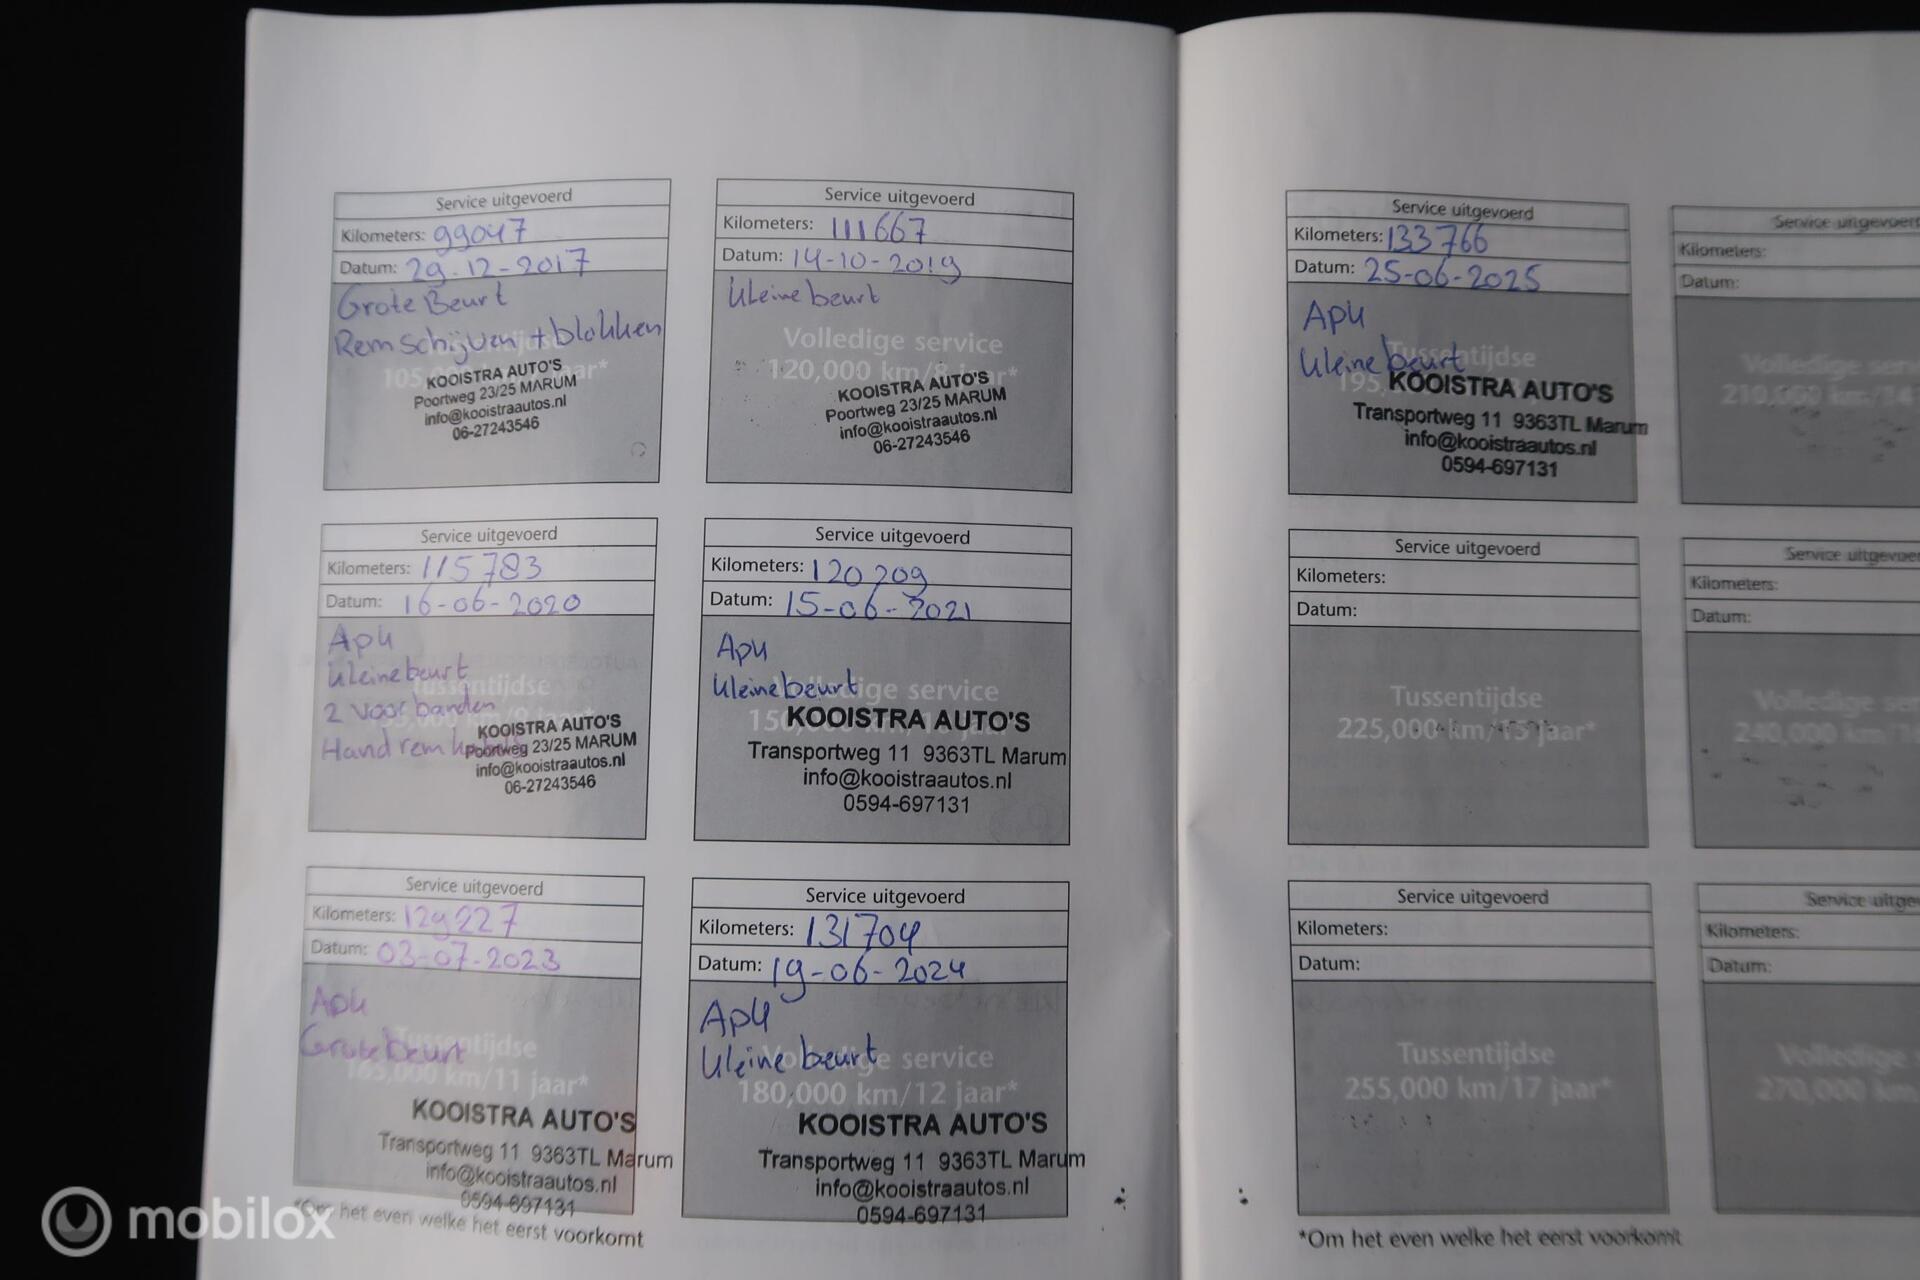 Service uitgevoerd
Kilometers: 99047
Datum: 29-12-2017
Grote Beurt
Remschijven + blokken
KOOISTRA AUTO'S
Poortweg 23/25 MARUM
info@kooistraautos.nl
06-27243546
Service uitgevoerd
Kilometers: 111667
Datum: 14-10-2019
Kleine beurt
Volledige service
120,000 km/8 jaar*
KOOISTRA AUTO'S
Poortweg 23/25 MARUM
info@kooistraautos.nl
06-27243546
Service uitgevoerd
Kilometers: 115783
Datum: 16-06-2020
Apk
Kleine beurt
Tussentijdse
2 voorbanden
Handrem
KOOISTRA AUTO'S
Poortweg 23/25 MARUM
info@kooistraautos.nl
06-27243546
Service uitgevoerd
Kilometers: 120209
Datum: 15-06-2021
Apk
Kleine beurt
Volledige service
KOOISTRA AUTO'S
Transportweg 11 9363TL Marum
info@kooistraautos.nl
0594-697131
Service uitgevoerd
Kilometers: 129227
Datum: 03-07-2023
Apk
Grote beurt
Tussentijdse
165,000 km/11 jaar*
KOOISTRA AUTO'S
Transportweg 11 9363TL Marum
info@kooistraautos.nl
0594-697131
Service uitgevoerd
Kilometers: 131704
Datum: 19-06-2024
Apk
Kleine beurt
Volledige service
180,000 km/12 jaar*
KOOISTRA AUTO'S
Transportweg 11 9363TL Marum
info@kooistraautos.nl
0594-697131
*Om het even welke het eerst voorkomt
Service uitgevoerd
Kilometers: 133766
Datum: 25-06-2025
Apk
Kleine beurt
Tussentijdse
KOOISTRA AUTO'S
Transportweg 11 9363TL Marum
info@kooistraautos.nl
0594-697131
Service uitgevoerd
Kilometers:
Datum:
Volledige
210,000 km/14
Service uitgevoerd
Kilometers:
Datum:
Tussentijdse
225,000 km/15 jaar*
Service uitgevoerd
Kilometers:
Datum:
Volledige
240,000 km/
Service uitgevoerd
Kilometers:
Datum:
Tussentijdse
255,000 km/17 jaar*
Service
Kilometers:
Datum:
Volledige
270,000 km
*Om het even welke het eerst voorkomt
mobilox